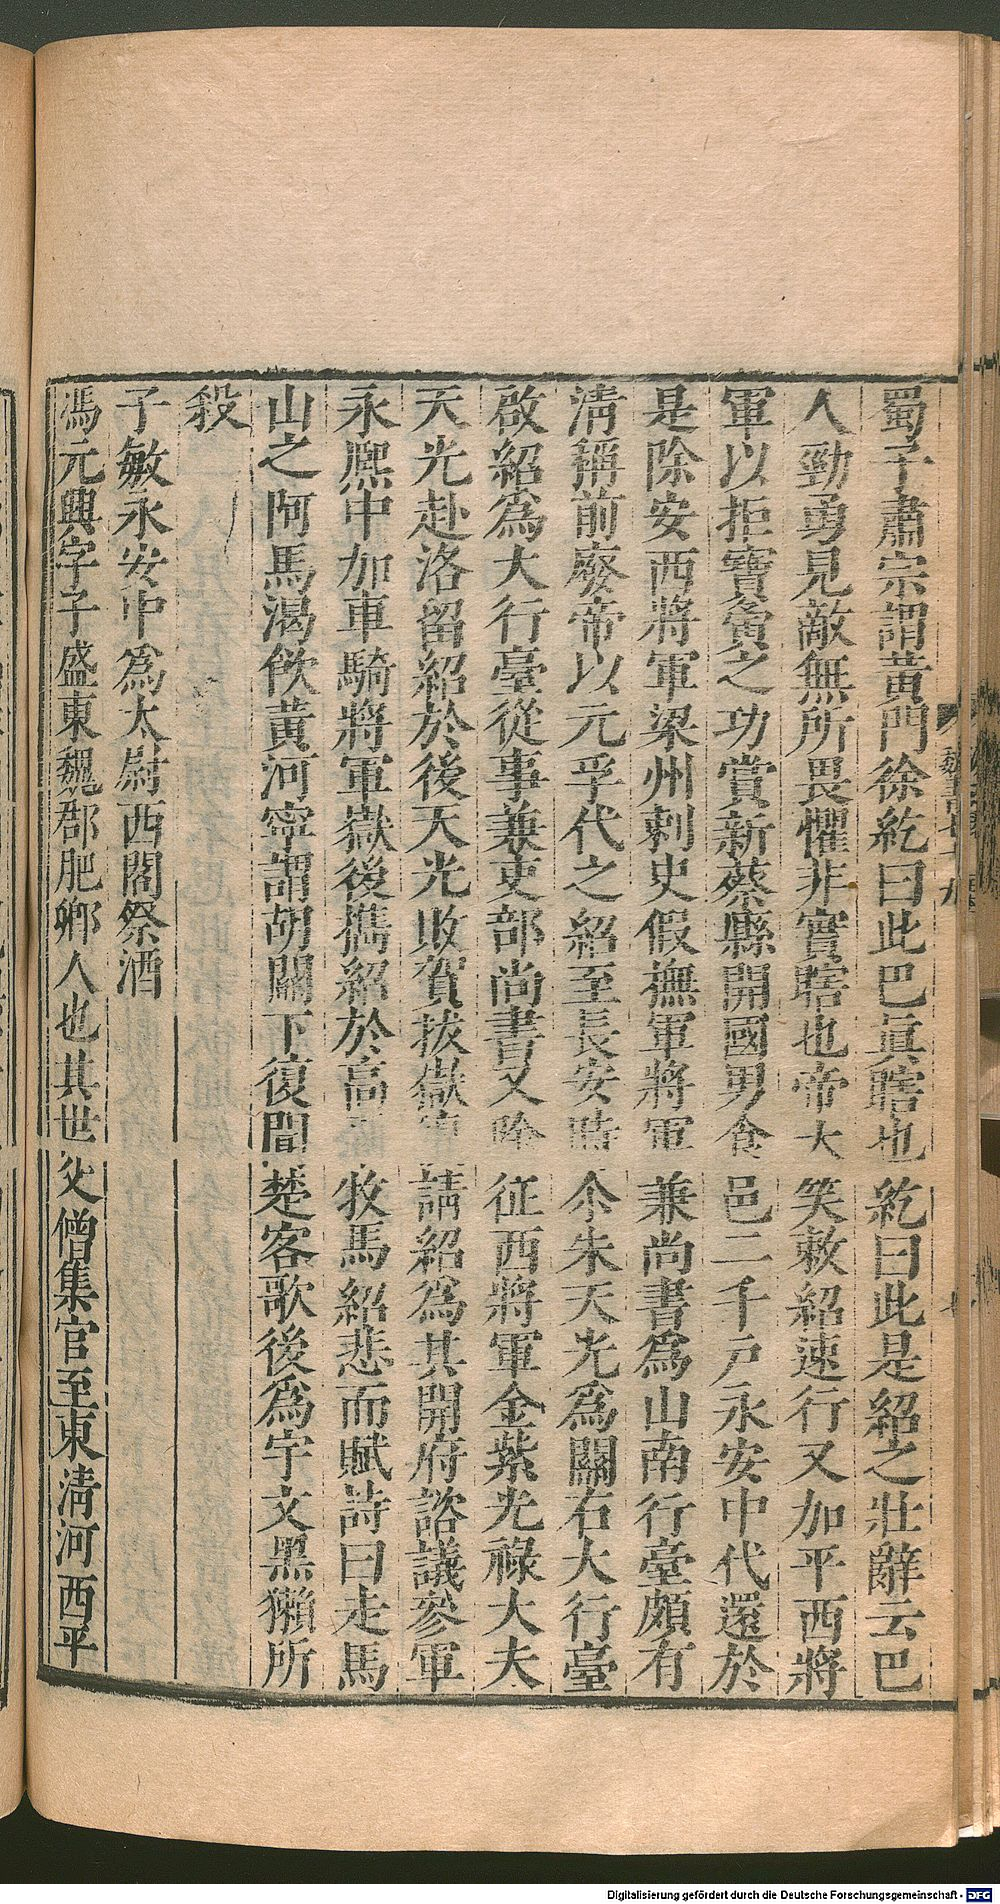 蜀子肅宗謂黄門徐紇曰此巴真瞎也紇曰此是紹之壯辭云巴
人勁勇見敵無所畏懼非實瞎也帝大笑敕紹速行又加平西將
軍以拒寶夤之功賞新蔡縣開國男食邑二千戸永安中代還於
是除安西將軍梁州刺史假撫軍將軍兼尚書爲山南行臺頗有
清稱前廢帝以元孚代之紹至長安時尒朱天光爲關右大行臺
啟紹爲大行臺從事兼吏部尚書又除征西將軍金紫光祿大夫
天光赴洛留紹於後天光敗賀拔嶽請紹爲其開府諮議參軍
永熈中加車騎將軍嶽後攜紹於高牧馬紹悲而賦詩曰走馬
山之阿馬渴飲黄河寧謂胡關下復聞楚客歌後爲宇文黑獺所
殺
子敏永安中爲太尉西閤祭酒
馮元興字子盛東魏郡肥鄉人也其世父僧集官至東清河西平
魏書七十九
Digitalisierung gefördert durch die Deutsche Forschungsgemeinschaft - DFG